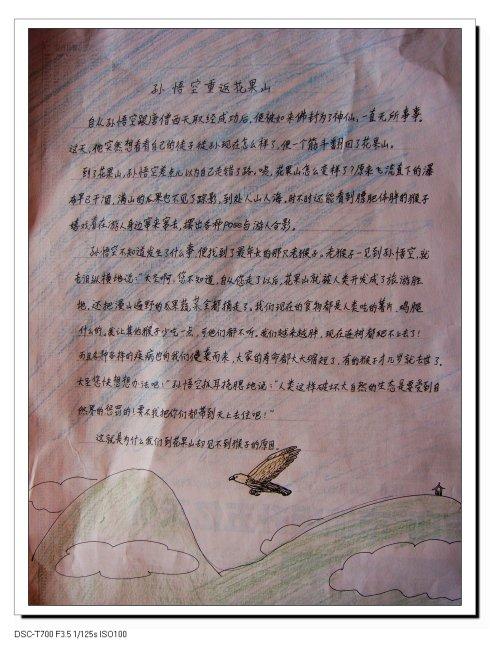 孙悟空重返花果山
自从孙悟空跟唐僧西天取经成功后，便被如来佛封为了神仙，一直无所事事。
这天，他突然想看看自己的徒子徒孙现在怎么样了，便一个筋斗翻回了花果山。
到了花果山，孙悟空差点儿以为自己走错了路。咦，花果山怎么变样了？原来飞流直下的瀑
布早已干涸，满山的瓜果也不见了踪影，到处人山人海。时不时还能看到膘肥体胖的猴子
嬉戏着在游人身边窜来窜去，摆出各种pose与游人合影。
孙悟空不知道发生了什么事，便找到了最年长的那只老猴子。老猴子一见到孙悟空，就
老泪纵横地说："大圣啊，您不知道，自从您走了以后，花果山就被人类开发成了旅游胜
地，还把漫山遍野的瓜果蔬菜全都摘走了。我们现在的食物都是人类吃的薯片、鸡腿
什么的。我让其他猴子少吃一点，可他们都不听。我们越来越胖，现在连树都爬不上去了！
而且各种各样的疾病也向我们袭来，大家的寿命都大大缩短了，有的猴子才几岁就去世了。
大圣您快想想办法吧！"孙悟空抓耳挠腮地说："人类这样破坏大自然的生态是要受到自
然界的惩罚的！要不我把你们都带到天上去住吧！"
这就是为什么我们到花果山却见不到猴子的原因。
DSC-T700 F3.5 1/125s ISO100